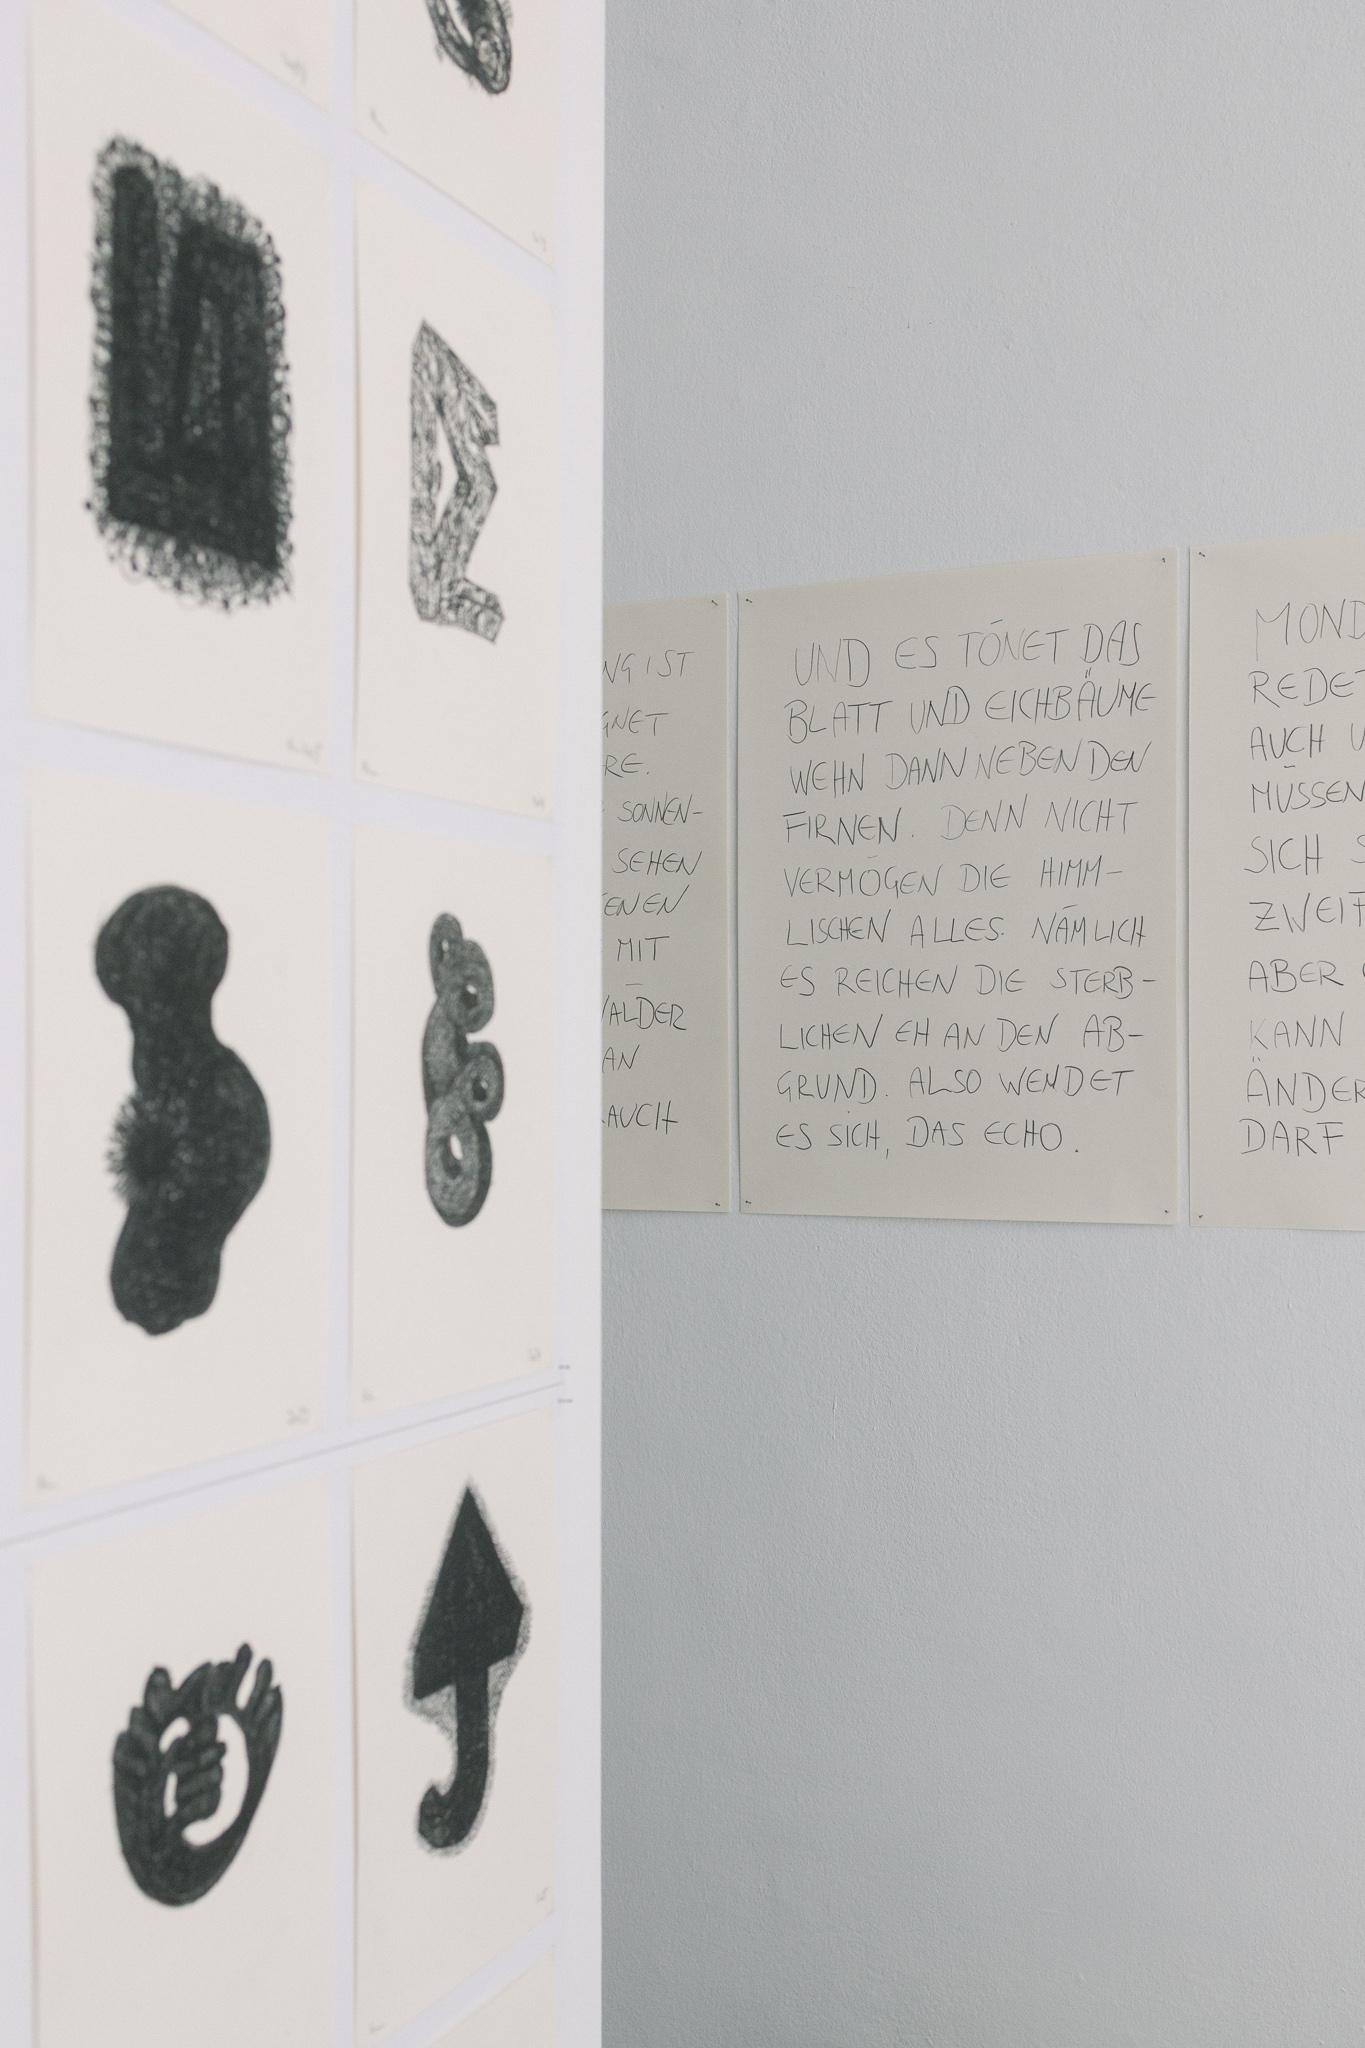 IST
SONNEN-
SEHEN
MIT
AUCH
UND ES TÖNET DAS
BLATT UND EICHBÄUME
WEHN DANN NEBEN DEN
FIRNEN. DENN NICHT
VERMÖGEN DIE HIMM-
LISCHEN ALLES. NÄMLICH
ES REICHEN DIE STERB-
LICHEN EH AN DEN AB-
GRUND. ALSO WENDET
ES SICH, DAS ECHO.
MOND
REDET
AUCH
MÜSSEN
SICH
ABER
KANN
ÄNDER
DARF